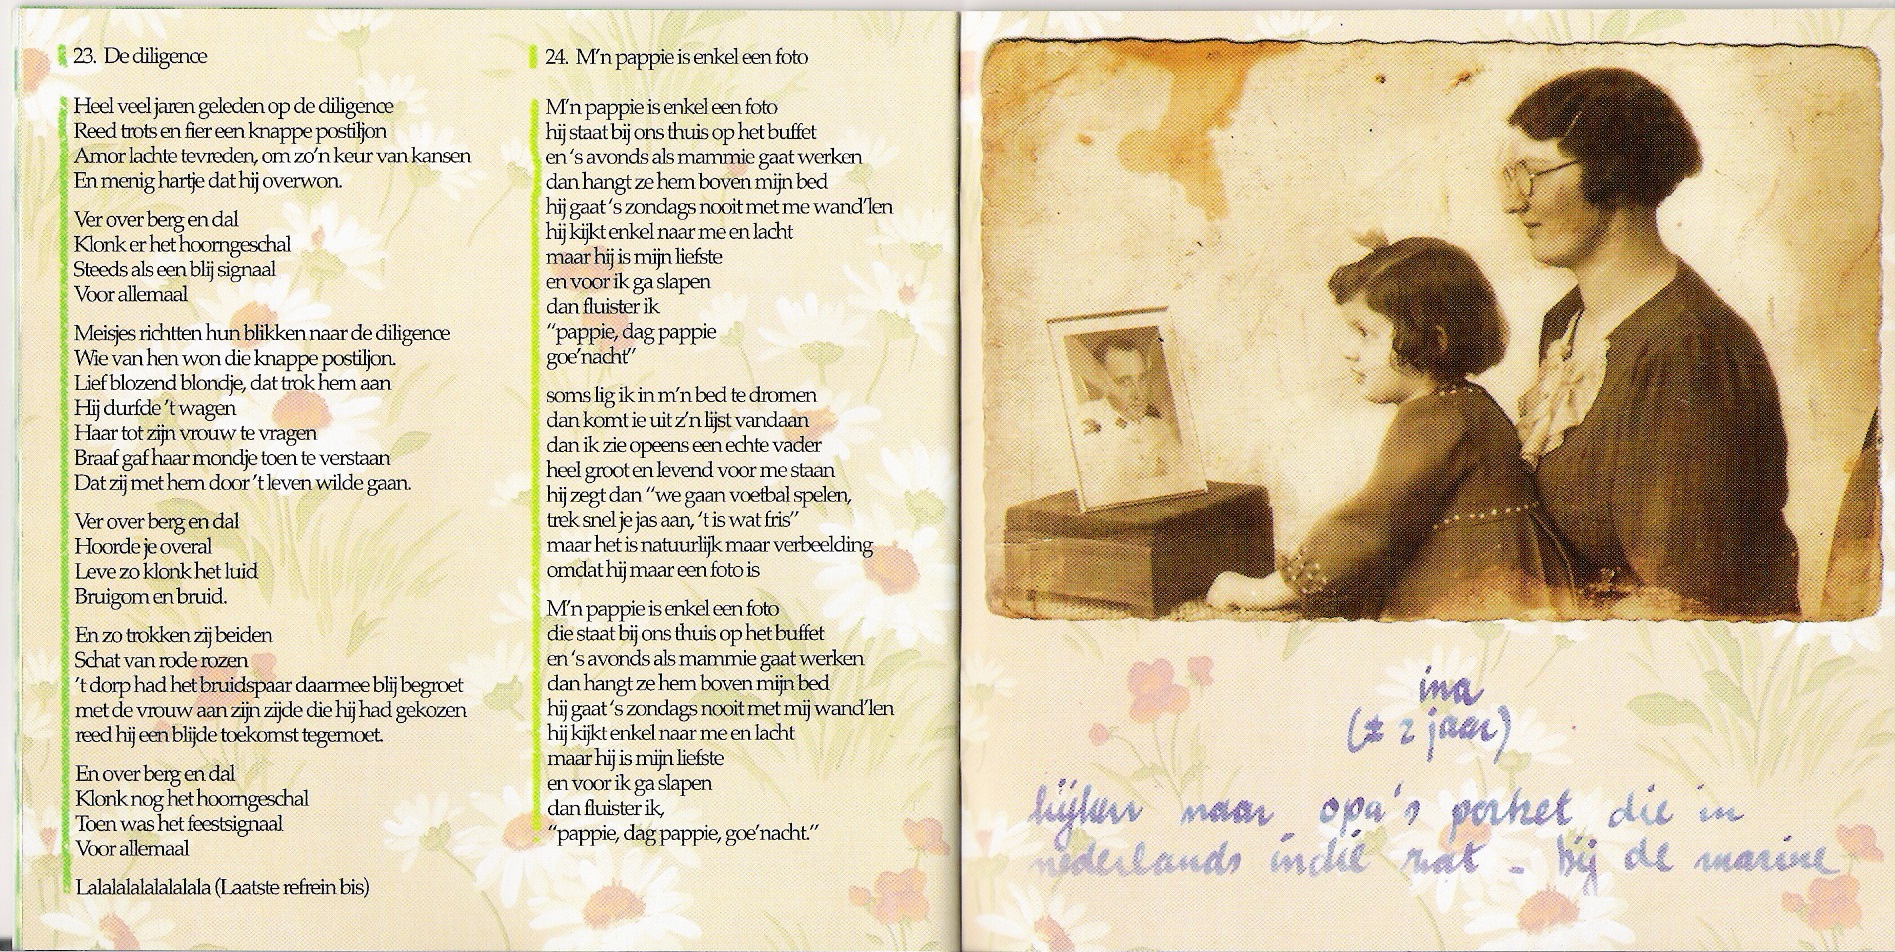 23. De diligence
Heel veel jaren geleden op de diligence
Reed trots en fier een knappe postiljon
Amor lachte tevreden, om zo'n keur van kansen
En menig hartje dat hij overwon.
Ver over berg en dal
Klonk er het hoorngeschal
Steeds als een blij signaal
Voor allemaal
Meisjes richtten hun blikken naar de diligence
Wie van hen won die knappe postiljon.
Lief blozend blondje, dat trok hem aan
Hij durfde 't wagen
Haar tot zijn vrouw te vragen
Braaf gaf haar mondje toen te verstaan
Dat zij met hem door 't leven wilde gaan.
Ver over berg en dal
Hoorde je overal
Leve zo klonk het luid
Bruigom en bruid.
En zo trokken zij beiden
Schat van rode rozen
't dorp had het bruidspaar daarmee blij begroet
met de vrouw aan zijn zijde die hij had gekozen
reed hij een blijde toekomst tegemoet.
En over berg en dal
Klonk nog het hoorngeschal
Toen was het feestsignaal
Voor allemaal
Lalalalalalalalala (Laatste refrein bis)
24. M'n pappie is enkel een foto
M'n pappie is enkel een foto
hij staat bij ons thuis op het buffet
en 's avonds als mammie gaat werken
dan hangt ze hem boven mijn bed
hij gaat 's zondags nooit met me wand'len
hij kijkt enkel naar me en lacht
maar hij is mijn liefste
en voor ik ga slapen
dan fluister ik
“pappie, dag pappie
goe'nacht”
soms lig ik in m'n bed te dromen
dan komt ie uit z'n lijst vandaan
dan ik zie opeens een echte vader
heel groot en levend voor me staan
hij zegt dan “we gaan voetbal spelen,
trek snel je jas aan, 't is wat fris”
maar het is natuurlijk maar verbeelding
omdat hij maar een foto is
M'n pappie is enkel een foto
die staat bij ons thuis op het buffet
en 's avonds als mammie gaat werken
dan hangt ze hem boven mijn bed
hij gaat 's zondags nooit met mij wand'len
hij kijkt enkel naar me en lacht
maar hij is mijn liefste
en voor ik ga slapen
dan fluister ik,
“pappie, dag pappie, goe'nacht.”
ina
(± 2 jaar)
kijken naar opa's portret die in
nederlands indië zat - bij de marine